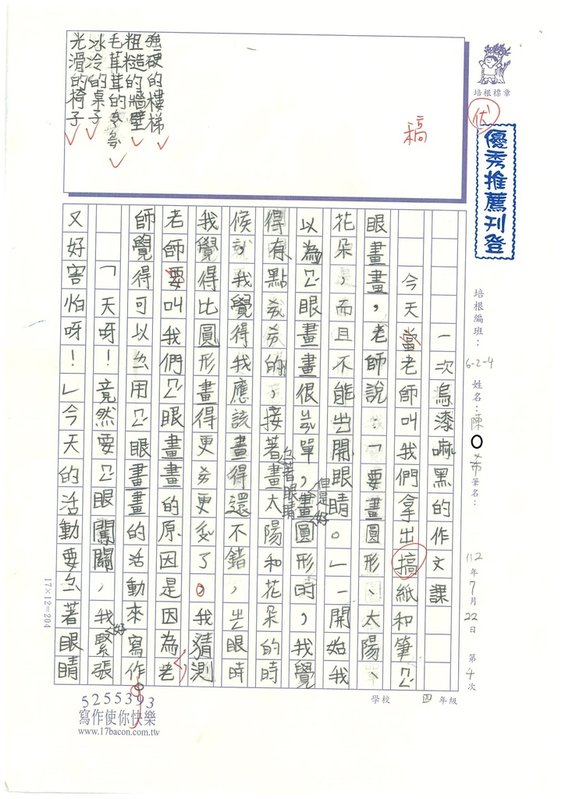 培根標章
優
優秀推薦刊登
培根編班:6-2-4 姓名:陳○芾 筆名:
112年7月22日 第4次
學校 四年級
稿
強硬的樓梯
粗糙的牆壁
毛茸茸的
冰冷的桌子
光滑的椅子
一次烏漆嘛黑的作文課
今天當老師叫我們拿出搞紙和筆ㄅ
眼畫畫,老師說:「要畫圓形、太陽、
花朵,而且不能ㄓ開眼睛。」一開始我
以為ㄅ眼畫畫很ㄐ單,但是畫圓形時,我覺
得有點ㄌㄌ的,接著畫太陽和花朵的時
候,我覺得我應該畫得還不錯,ㄓ眼時
我覺得比圓形畫得更ㄌ更ㄌ了。我猜測
老師要叫我們ㄅ眼畫畫的原因是因為老
師覺得可以ㄠ用ㄅ眼畫畫的活動來寫作
「天呀!竟然要ㄅ眼闖關,我好緊張
又好害怕呀!」今天的活動要ㄠ著眼睛
17×12=204
5255393
寫作使你快樂
www.17bacon.com.tw